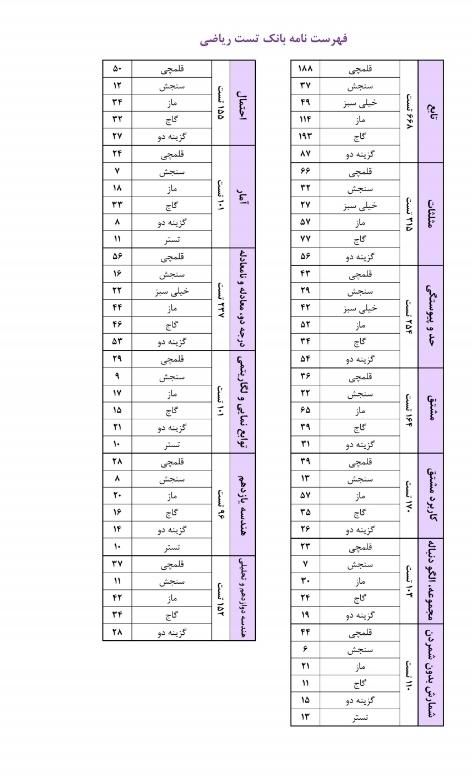 فهرست نامه بانک تست ریاضی
تابع
۶۶۸ تست
قلمچی ۱۸۸
سنجش ۳۷
خیلی سبز ۴۹
ماز ۱۱۴
گاج ۱۹۳
گزینه دو ۸۷
مثلثات
۳۱۵ تست
قلمچی ۶۶
سنجش ۳۲
خیلی سبز ۲۷
ماز ۵۷
گاج ۷۷
گزینه دو ۵۶
حد و پیوستگی
۲۵۴ تست
قلمچی ۴۳
سنجش ۲۹
خیلی سبز ۴۲
ماز ۵۲
گاج ۳۴
گزینه دو ۵۴
مشتق
۱۶۴ تست
قلمچی ۳۶
سنجش ۲۲
ماز ۶۵
گاج ۳۹
گزینه دو ۳۱
کاربرد مشتق
۱۷۰ تست
قلمچی ۳۹
سنجش ۱۳
ماز ۵۷
گاج ۳۵
گزینه دو ۲۶
مجموعه، الگو دنباله
۱۰۳ تست
قلمچی ۲۳
سنجش ۷
ماز ۳۰
گاج ۲۴
گزینه دو ۱۹
شمارش بدون شمردن
۱۱۰ تست
قلمچی ۴۴
سنجش ۶
ماز ۲۱
گاج ۱۱
گزینه دو ۱۵
تستر ۱۳
احتمال
۱۵۵ تست
قلمچی ۵۰
سنجش ۱۲
ماز ۳۴
گاج ۳۲
گزینه دو ۲۷
آمار
۱۰۱ تست
قلمچی ۲۴
سنجش ۷
ماز ۱۸
گاج ۳۳
گزینه دو ۸
تستر ۱۱
درجه دو، معادله و نامعادله
۲۳۷ تست
قلمچی ۵۶
سنجش ۱۶
خیلی سبز ۲۲
ماز ۴۴
گاج ۴۶
گزینه دو ۵۳
توابع نمایی و لگاریتمی
۱۰۱ تست
قلمچی ۲۹
سنجش ۹
ماز ۱۷
گاج ۱۵
گزینه دو ۲۱
تستر ۱۰
هندسه یازدهم
۹۶ تست
قلمچی ۲۸
سنجش ۸
ماز ۲۰
گاج ۱۶
گزینه دو ۱۴
تستر ۱۰
هندسه دوازدهم و تحلیلی
۱۵۲ تست
قلمچی ۳۷
سنجش ۱۱
ماز ۴۲
گاج ۳۴
گزینه دو ۲۸